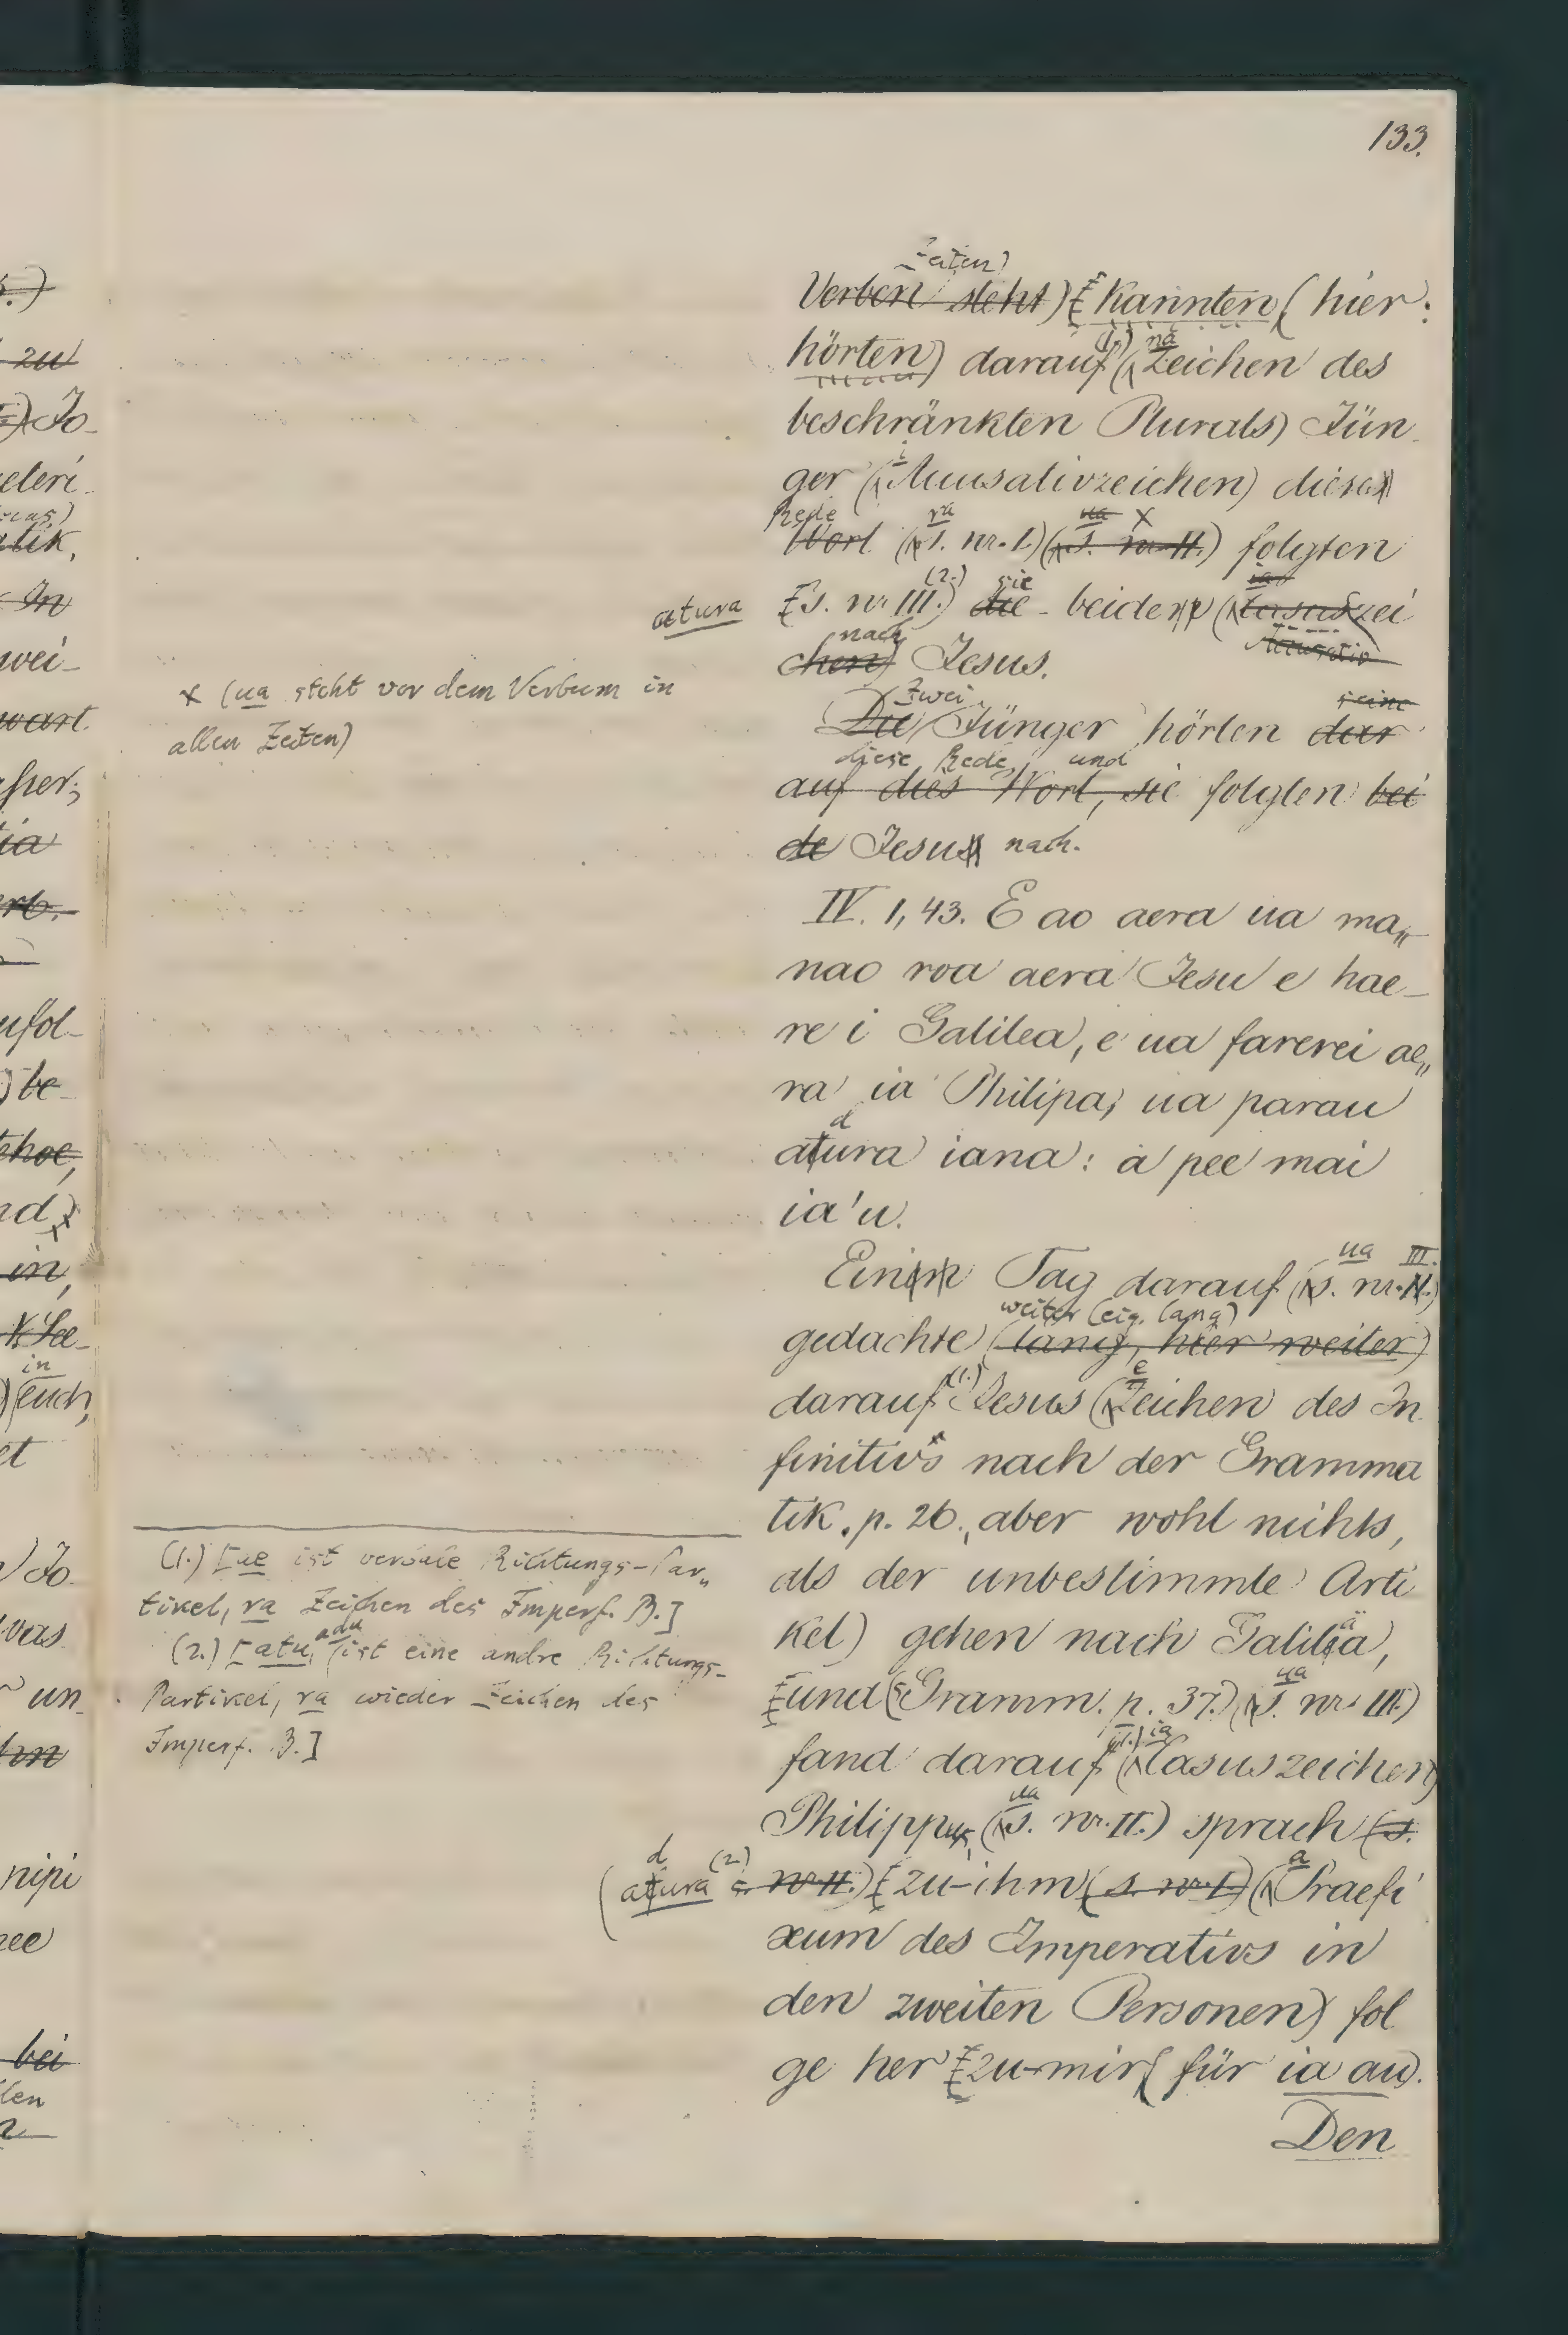 133.
Zeiten)
Verben steht) [kannten (hier:
hörten) darauf (1.) (na Zeichen des
beschränkten Plurals) Jün-
ger (i Accusativzeichen) dieses
Rede
Wort (ra s. nr. I.) (ua s. nr. II.) x folgten
atura [s. nr. III.) (2.) die sie beiden (ia Casuszei
chen) nach Jesus. Accusativ
x (ua steht vor dem Verbum in
allen Zeiten)
Die Zwei Jünger hörten dar seine
diese Rede, und
auf dies Wort, sie folgten bei
de Jesus nach.
IV. 1, 43. E ao aera ua ma„
nao roa aera Jesu e hae-
re i Galilea, e ua farerei ae„
ra ia Philipa; ua parau
d
atura iana: a pee mai
ia'u.
ua III.
Einen Tag darauf (s. nr. II.)
weiter (eig. lang)
gedachte (lang, hier weiter)
darauf (1.) Jesus (e Zeichen des In
finitivs nach der Gramma
tik. p. 26., aber wohl nichts,
als der unbestimmte Arti
kel) gehen nach Galiläa,
[und (Gramm. p. 37.) (ua s. nr. III.)
fand darauf (1.) (ia Casuszeichen)
Philippus, (ua s. nr. II.) sprach (s.
d (2.) a
(atura s. nr. II.) [zu-ihm (s. nr. I.) (Praefi
xum des Imperativs in
den zweiten Personen) fol
ge her [zu-mir (für ia au).
Den
(1.) [ae ist verbale Richtungs-Par„
tikel, ra Zeichen des Imperf. B.]
(2.) [atu, adu ist eine andre Richtungs-
Partikel, ra wieder Zeichen des
Imperf. B.]